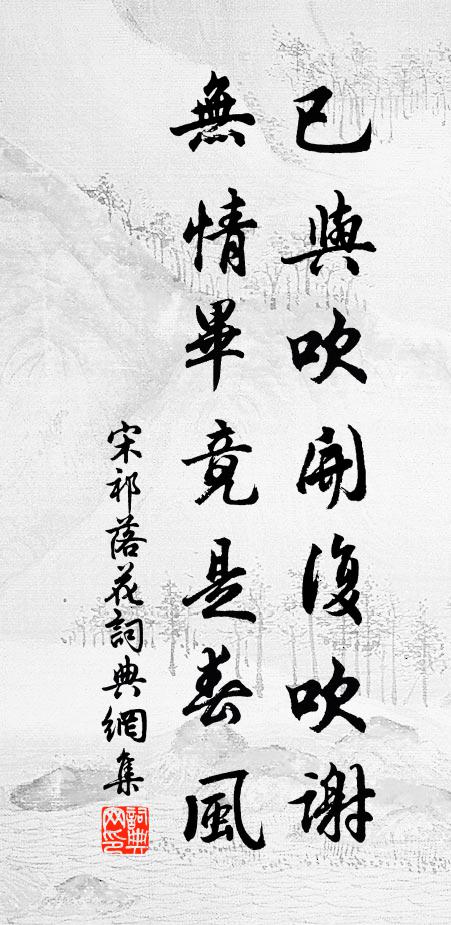 已與吹開復吹謝
無情畢竟是春風
宋祁落花詞典網集
詞典網印